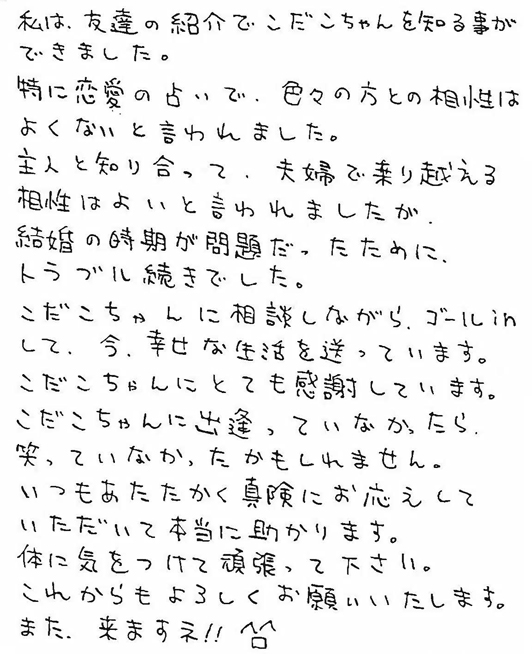 私は、友達の紹介でこだこちゃんを知る事が
できました。
特に恋愛の占いで、色々の方との相性は
よくないと言われました。
主人と知り合って、夫婦で乗り越える
相性はよいと言われましたが、
結婚の時期が問題だったために、
トラブル続きでした。
こだこちゃんに相談しながら、ゴールin
して、今、幸せな生活を送っています。
こだこちゃんにとても感謝しています。
こだこちゃんに出逢っていなかったら、
笑っていなかったかもしれません。
いつもあたたかく真険にお応えして
いただいて本当に助かります。
体に気をつけて頑張って下さい。
これからもよろしくお願いいたします。
また、来ますネ!!